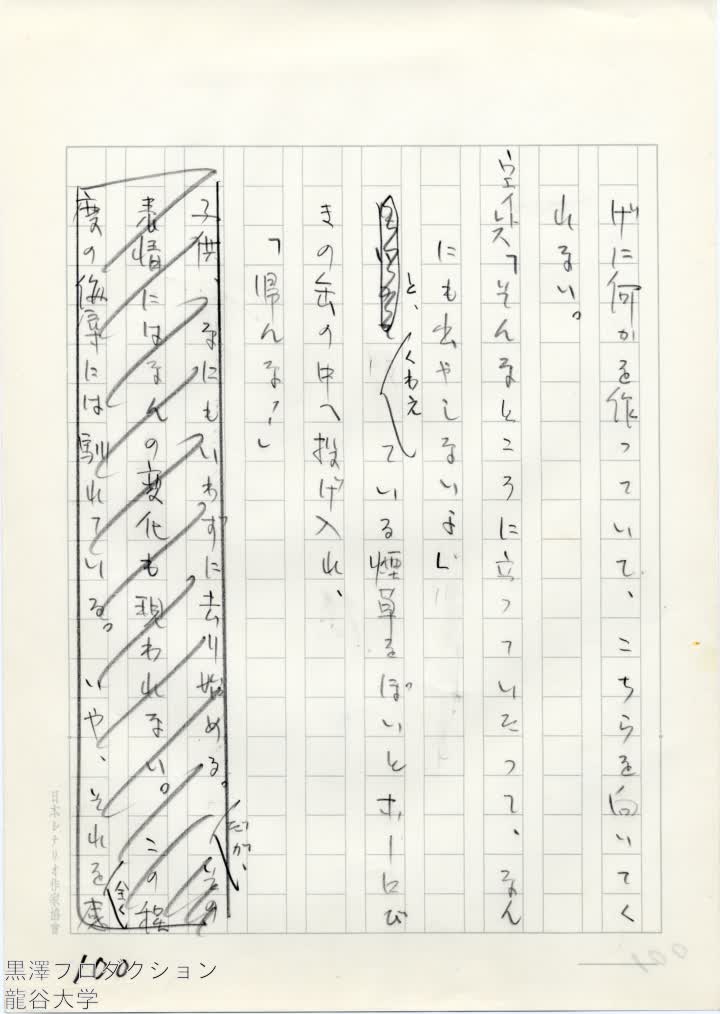 げに何かを作っていて、こちらを向いてく
れない。
「そんなところに立っていたって、なん
にも出やしないよ」
と、くわえ
ている煙草をぽいとホーローび
きの缶の中へ投げ入れ、
「帰んな!」
子供、なにもいわずに去り始める。
だが、その
表情にはなんの変化も現われない。この程
度の侮辱には馴れている。いや、それを
全く
日本シナリオ作家協會
100
黒澤プロダクション
龍谷大学